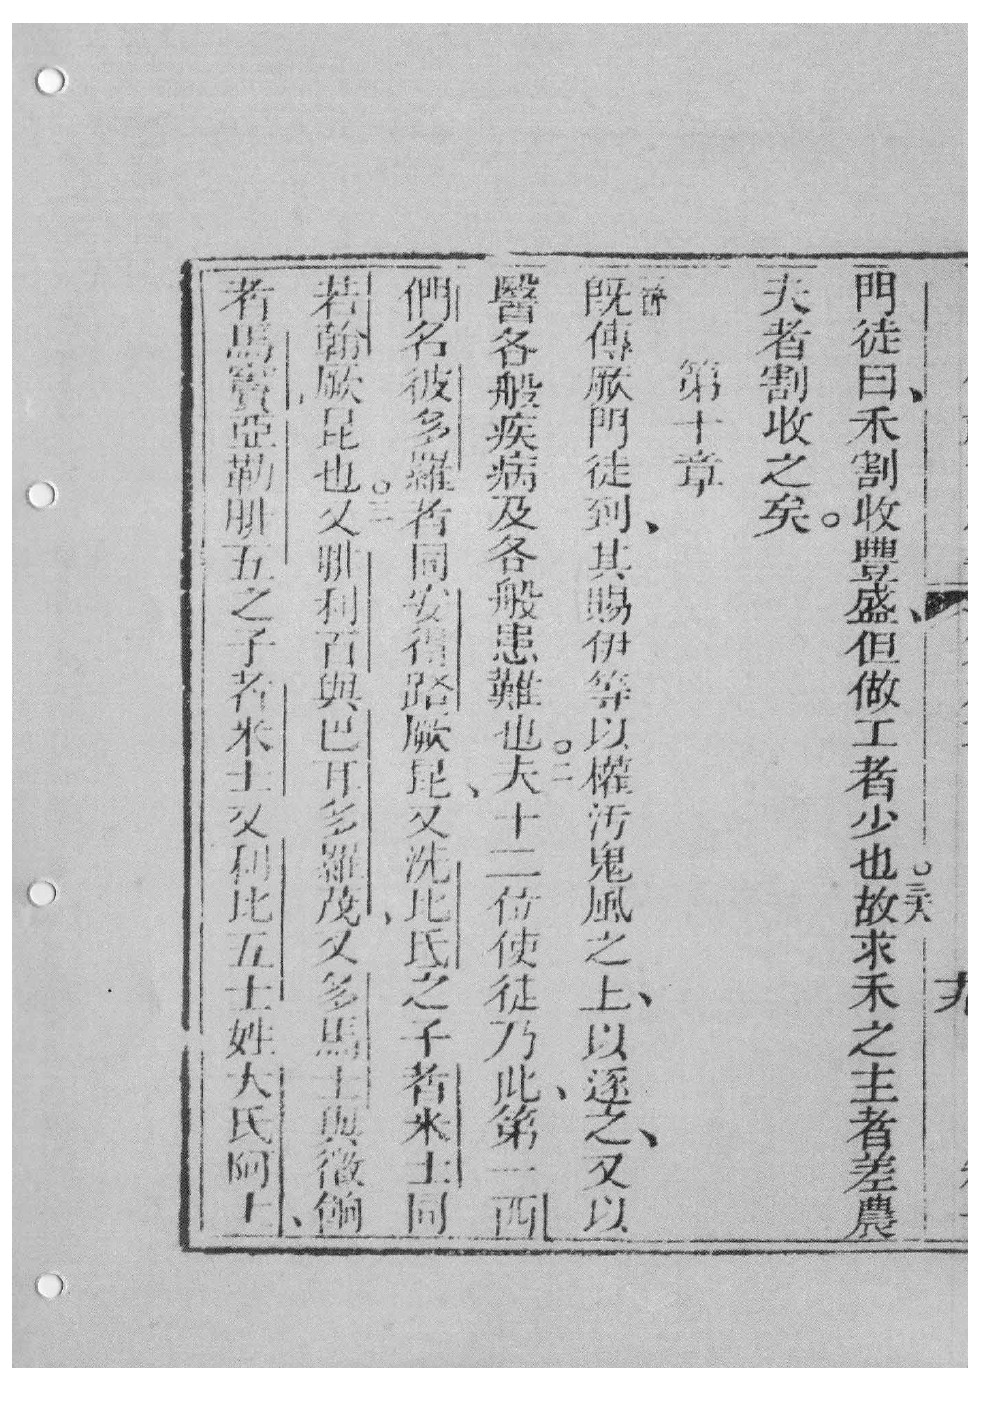 門徒曰、禾割收豐盛、但做工者少也。三六故求禾之主者差農
夫者割收之矣。
第十章
一節既傳厥門徒到、其賜伊等以權汚鬼風之上、以逐之、又以
醫各般疾病及各般患難也。二夫十二位使徒乃此、第一西
們名彼多羅者同安得路厥昆、又洗比氏之子者米士同
若翰厥昆也。三又 利百與巴耳多羅茂、又多馬士與徵
者馬竇亞勒 五之子者米士又利比五士姓大氏阿士、